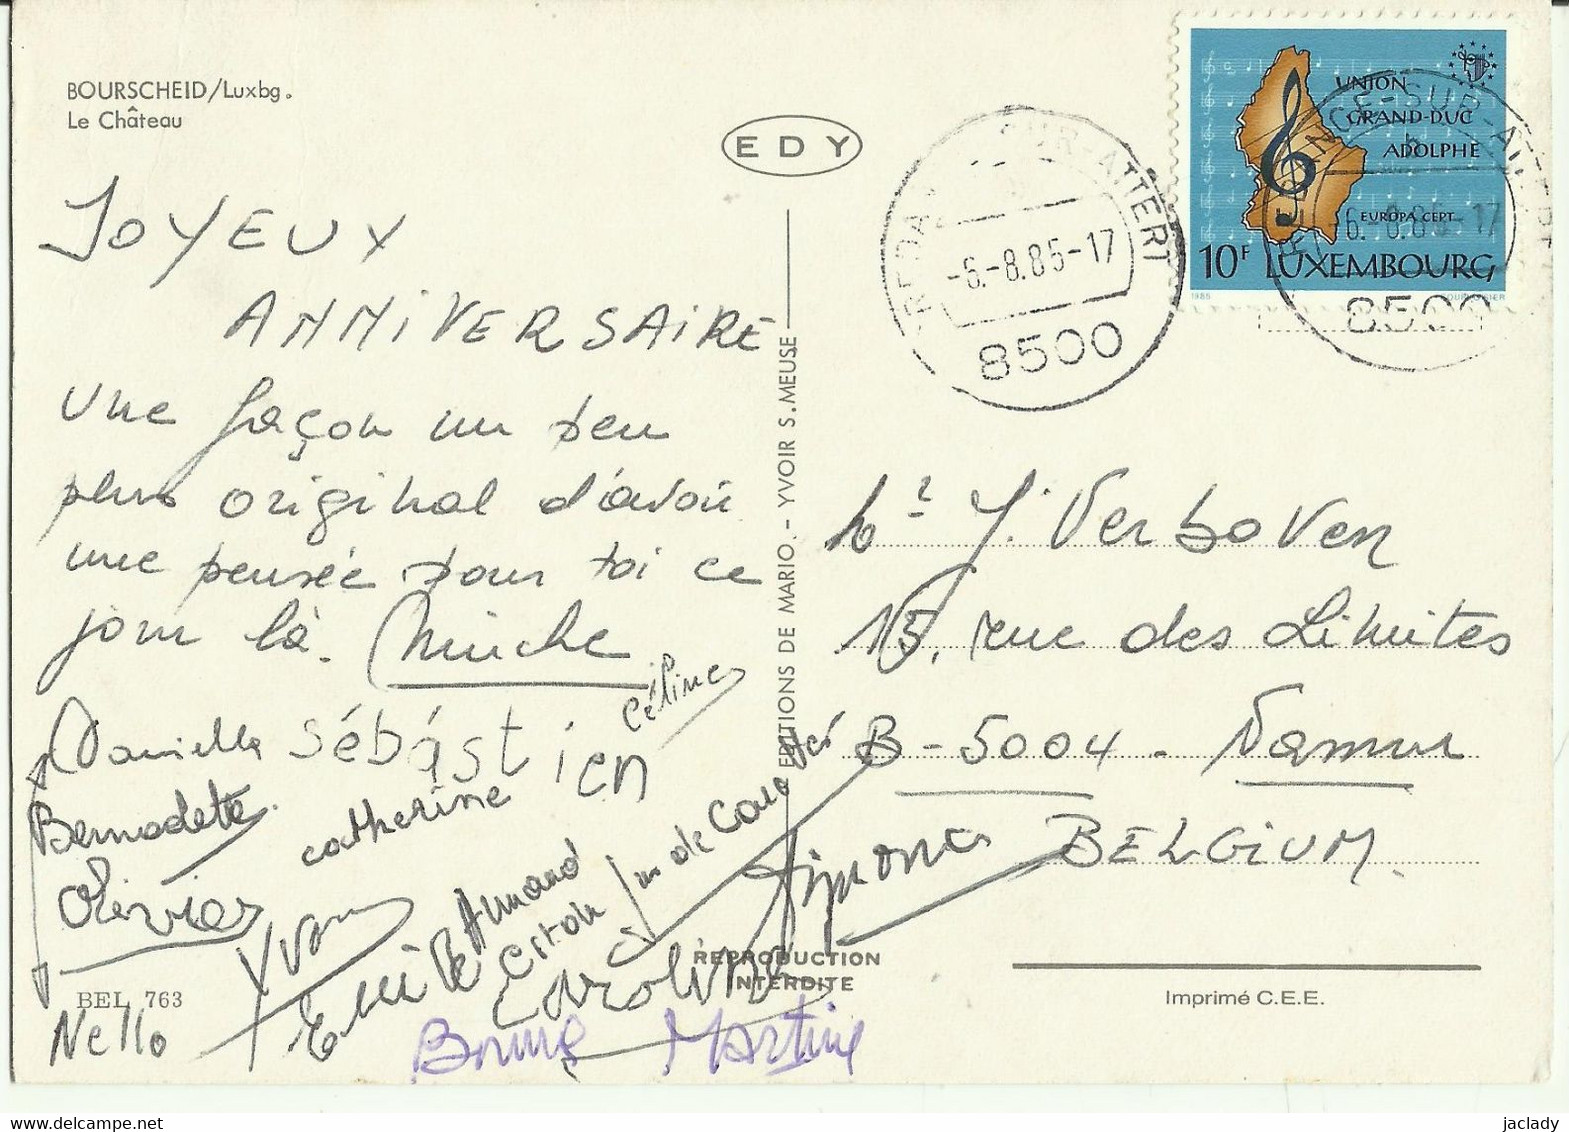 BOURSCHEID/Luxbg.
Le Château
EDY
JOYEUX
ANNIVERSAIRE
une façon un peu
plus original d'avoir
une pensée pour toi ce
jour là.
Céline
Danielle Sébastien
Bernadette
catherine
Olivier
Yvon
Armand
Caroline
Simone
Nello
Martine
BEL 763
EDITIONS DE MARIO. - YVOIR S. MEUSE
REPRODUCTION
INTERDITE
SUR-ATTERT
-6.-8.85-17
8500
UNION
GRAND-DUC
ADOLPHE
EUROPA CEPT
10F LUXEMBOURG
1985
-6.-8.85-17
8500
J. Verboven
15, rue des Limites
B-5004. Namur
BELGIUM.
Imprimé C.E.E.
jaclady